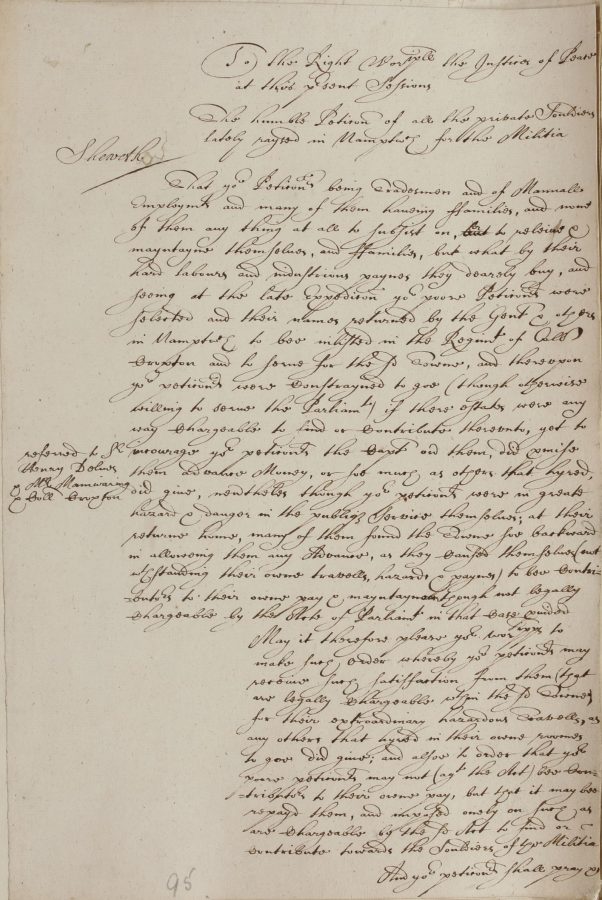 To the Right Wor:ipll the Justices of Peace
at this p:rsent Sessions
The humble Peticon of all the private Souldiers
lately raysed in Namptw:ch for the Militia
Sheweth
That yo:r Peticon:rs being Tradesmen and of Manuall
Employm:ts and many of them haueing ffamilies, and none
of them any thing at all to subsist on, but to releiue &
mayntayne themselues, and ffamilies, but what by their
hard labours and industrious paynes they dearely buy, and
seeing at the late Expedicon yo:r poore Peticon:rs were
selected and their names returned by the Gent & others
in Namptw:ch to bee inlisted in the Regim:t of Coll
Croxton and to serue for the s:d Towne, and thereupon
yo:r peticon:rs were Constrayned to goe (though otherwise
willing to serue the Parliam:t) if there estates were any
way Chargeable to find or Contribute therevnto, yet to
encourage yo:r peticon:rs the Capt: and them, did p:mise
them advance Money, or soe much as others that hyred,
did giue, neu:rtheles though yo:r peticon:rs were in greate
hazard & danger in the publiq: Service themselues; at their
returne home, many of them found the Towne soe backward
in allowing them any Advance, as they Caused themselues (not
w:thstanding their owne travells, hazards & paynes) to bee Contri-
-butors to their owne pay & mayntaynance though not legally
Chargeable by the Acte of Parliam:t in that Case p:uided
referred to S:r
Henry Delves
M:r Manwaring
& Coll Croxton
May it therefore please yo:r wor:ipps to
make such Order whereby yo:r peticon:rs may
receiue such satisfaction from them (that
are legally Chargeable w:thin the s:d Towne)
for their extraordinary hazardous Travells, as
any others that hyred in their owne roomes
to goe did giue; and alsoe to order that yo:r
poore peticon:rs may not (ag:t the Act) bee Con-
-tributors to their owne pay, but that it may bee
repayd them, and imposed onely on such as
are Chargeable by the s:d Act to find or
Contribute towards the Souldiers of the Militia
And yo:r peticon:rs shall pray &c
95